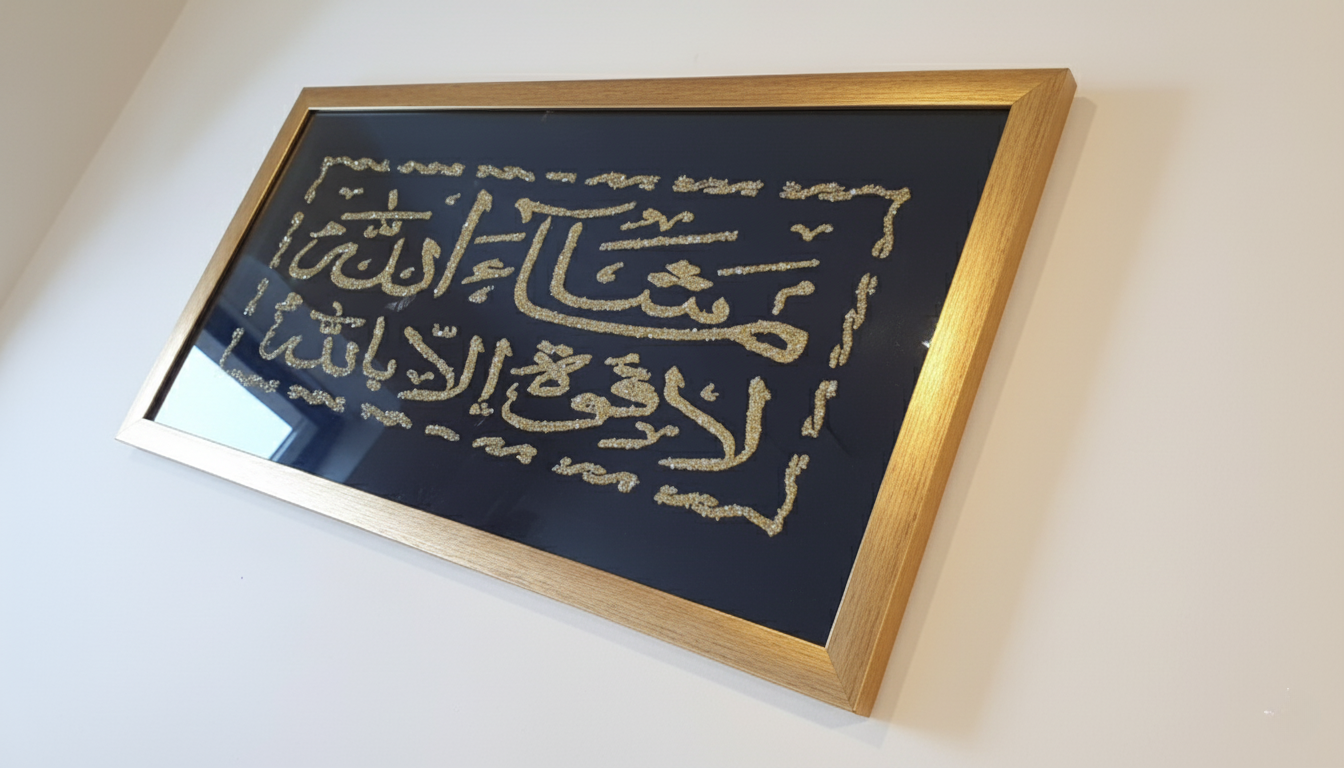 مَا شَاءَ اللّٰه
لَا قُوَّةَ إِلَّا بِاللّٰه